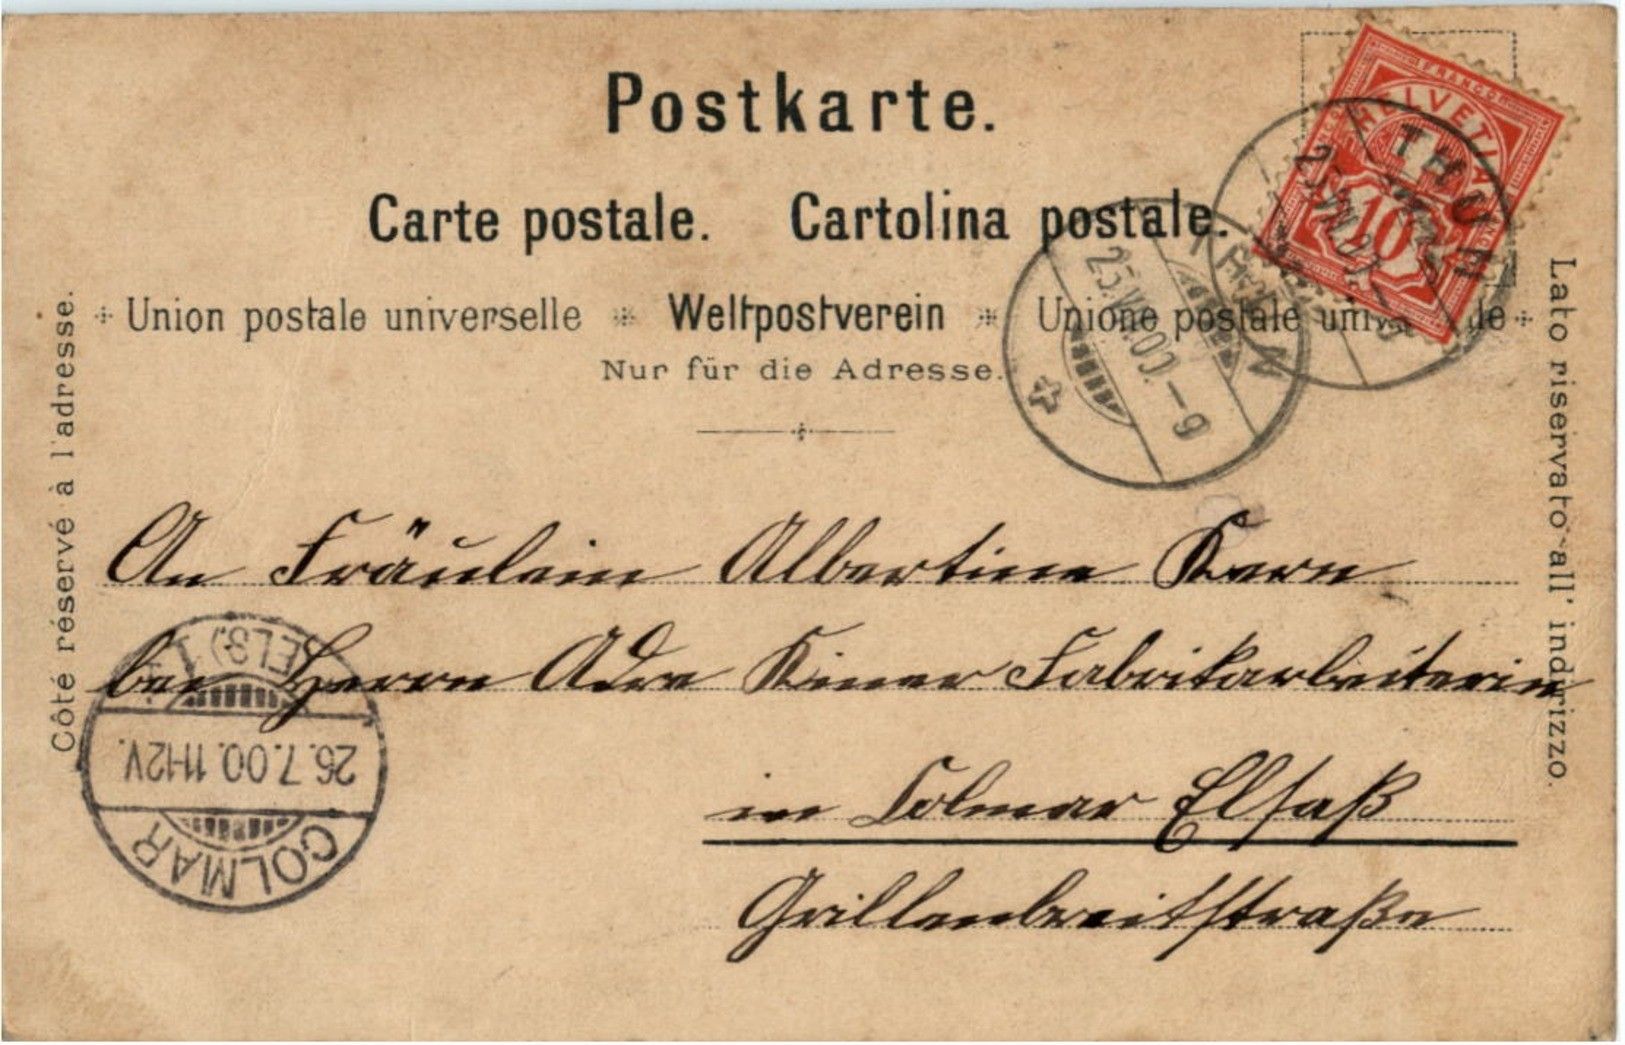 Postkarte.
Carte postale. Cartolina postale.
Union postale universelle Weltpostverein Unione postale
Nur für die Adresse.
Côté réservé à l'adresse.
Lato riservato all' indirizzo.
FRANCO
HELVETIA
10
THUN
25.VII.00.-9
An Fräulein Albertine Kern
bei Herrn Kiner Fabrikarbeiterin
in Colmar Elsaß
Grillenbreitstraße
COLMAR
26.7.00.11-12V.
(ELS.) 1